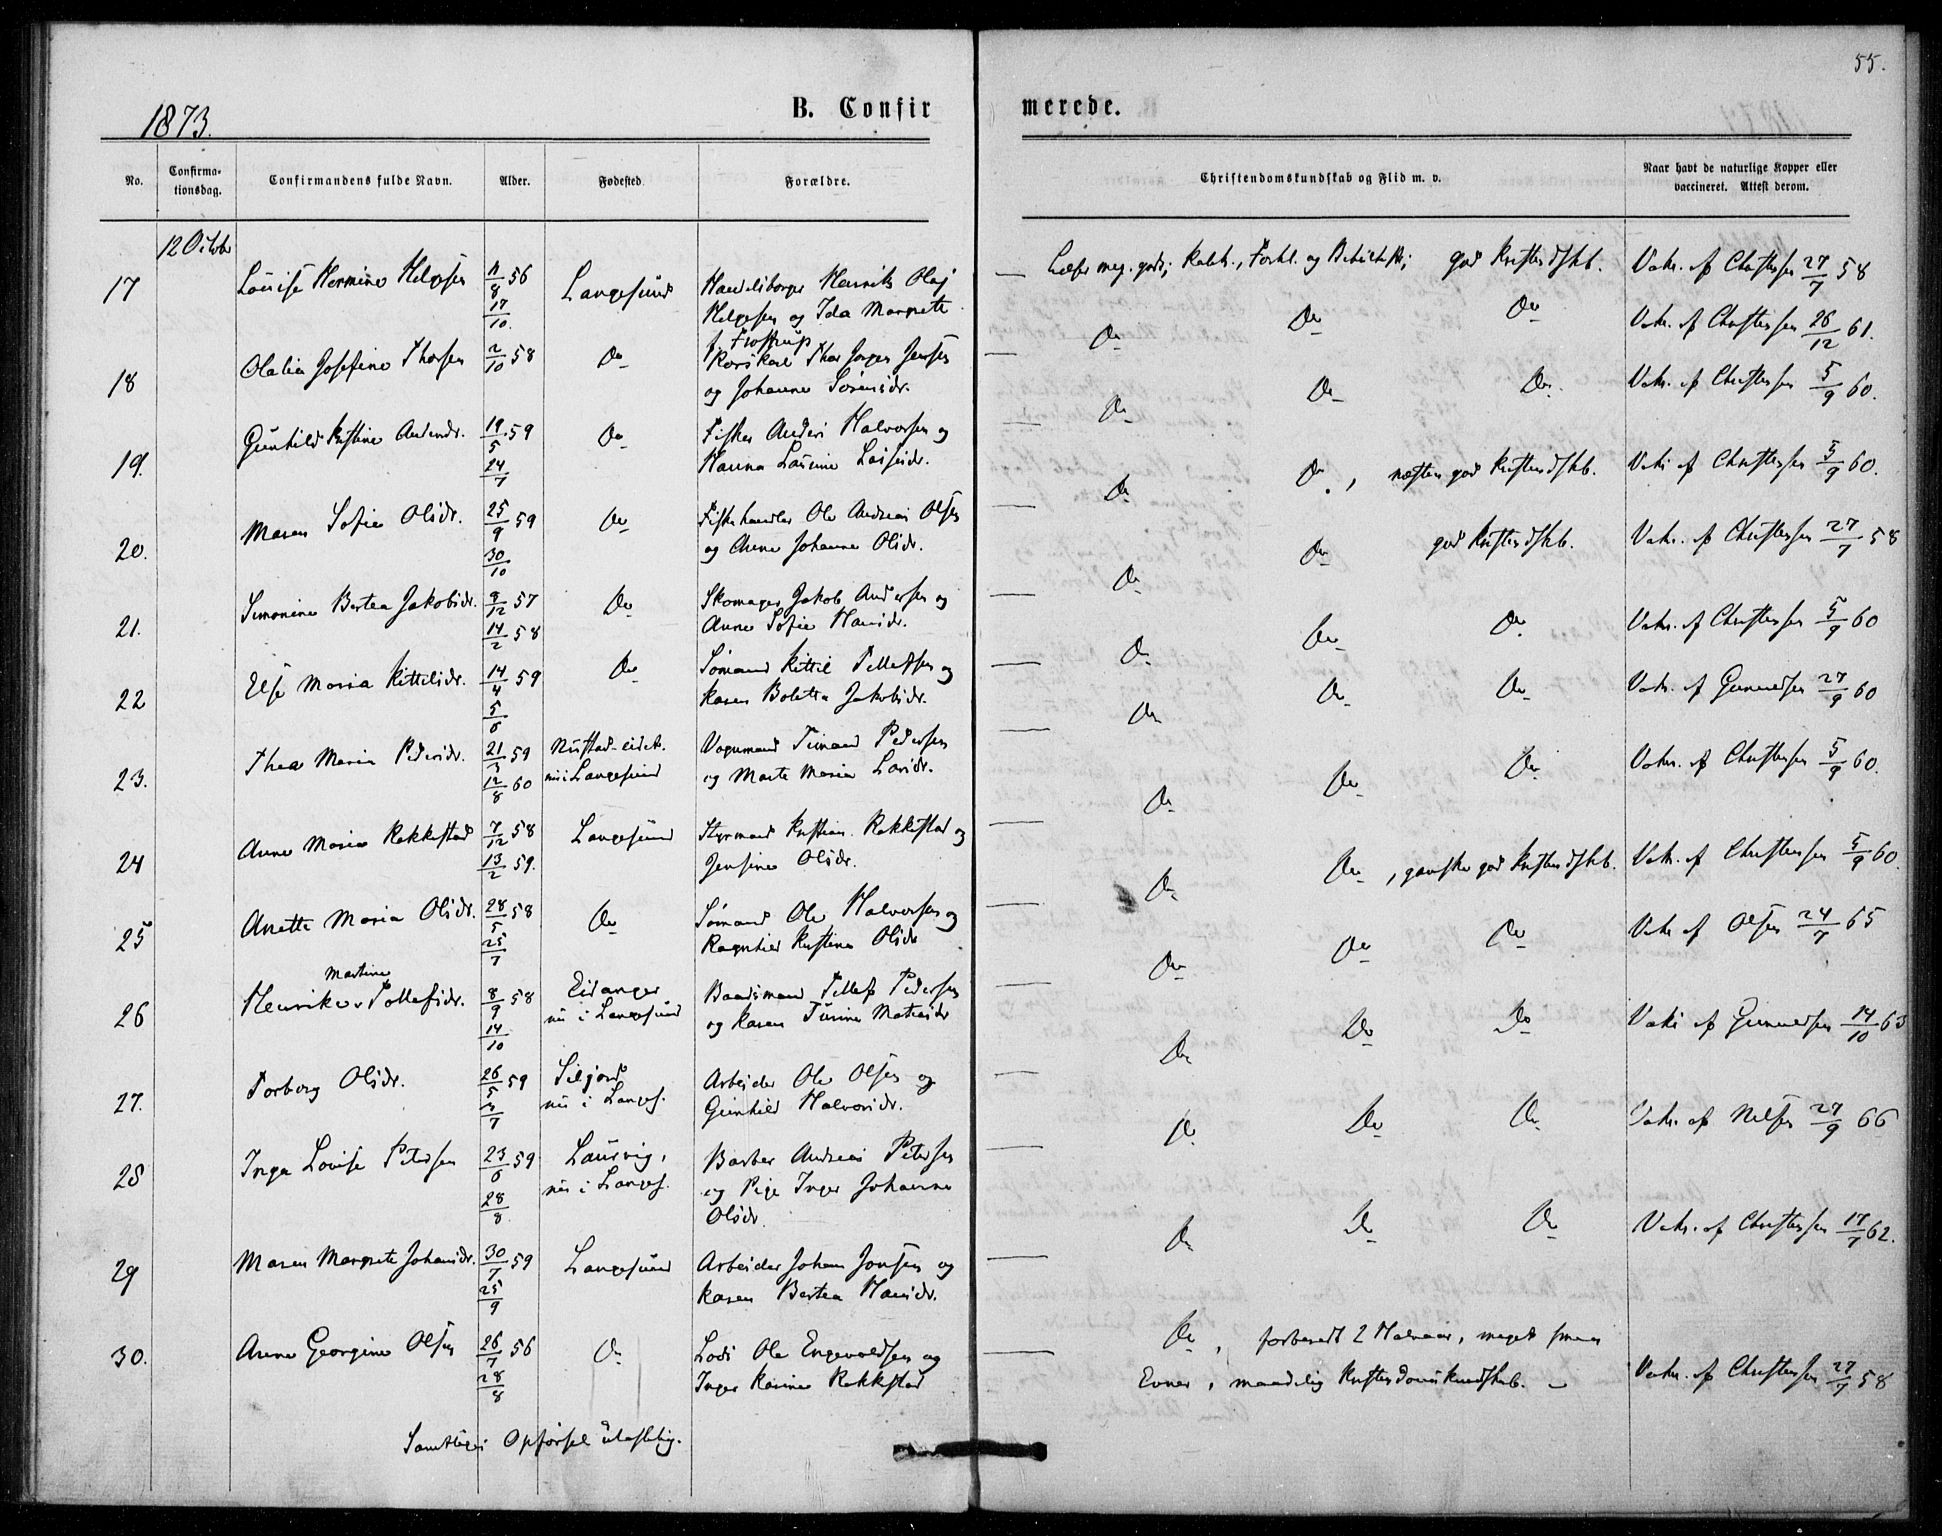 55.
1873.
B. Confirmerede.
No.
Confirmationsdag.
Confirmandens fulde Navn.
Alder.
Fødested.
Forældre.
Christendomskundskab og Flid m. v.
Naar havt de naturlige Kopper eller vaccineret. Attest derom.
12 Octobr
17 Louise Hermine Helgesen 11/8 56 17/10. Langesund Handelsborger Henrik Olaj
Helgesen og Ida Margrete
f.
Læser meg. godt; Katek., Forkl. og Bibelhist; god Kristendskb. Vakc. af Christensen 27/7 58
18 Olalia Josefine Thorsen 2/10 58 Do Thor Jørgen Jensen
og Johanne Sørensdr.
Do Do Do Vakc. af Christensen 26/12 61.
19. Gunhild Kristine Andersdr. 19/5 59 24/7 Do Fisker Anders Halvorsen og
Hanna Laurine Larsdr.
Do Do Do. Vakc. af Christensen 5/9 60.
20. Maren Sofie Olsdr. 25/9 59 30/10 Do Fiskehandler Ole Andreas Olsen
og Anne Johanne Olsdr.
Do Do, næsten god Kristendskb. Vakc. af Christensen 5/9 60.
21. Simonine Bertea Jakobsdr. 9/12 57 14/2 58 Do Skomager Jakob Andersen og
Anne Sofie Hansdr.
Do Do god Kristendskb. Vakc. af Christensen 27/7 58
22 Else Maria Kittilsdr. 14/4 59 5/6 Do Sømand Kittil Tellefsen og
Karen Boletta Jakobsdr.
Do Do Do. Vakc. af Christensen 5/9 60
23. Thea Maria Pedersdr. 21/3 59 12/8 60 Nustad-eidet.
nu i Langesund Vognmand Simand Pedersen
og Marte Maria Larsdr.
Do Do Do Vakc. af Gunnulfsen 27/9 60
24 Anne Maria Rakkestad 7/12 58 13/2 59. Langesund Styrmand Kristian Rakkestad og
Jensine Olsdr.
Do Do Do Vakc. af Christensen 5/9 60.
25 Anette Maria Olsdr. 28/5 58 25/7 Do Sømand Ole Halvorsen og
Ragnhild Kristine Olsdr
Do Do, ganske god Kristendskb. Vakc. af Christensen 5/9 60.
26 Henrikke Martine Tollefsdr. 8/9 58 14/10 Eidanger
nu i Langesund Baadsmand Tellef Pedersen
og Karen Turine Matiasdr
Do Do Do Vakc. af Olsen 24/7 65
27. Torborg Olsdr. 26/5 59 3/7 Siljord
nu i Langes. Arbeider Ole Olsen og
Gunhild Halvorsdr.
Do Do Do Vakc. af Gunnulfsen 14/10 63
28 Inga Louise Petersen 23/6 59 28/8. Laurvig,
nu i Langes. Barber Andreas Petersen
og Pige Inger Johanne
Olsdr.
Do Do Do Vakc. af Nilsen 27/9 66
29 Maren Margrete Johansdr. 30/7 59 25/9 Langesund Arbeider Johan Jonsen og
Karen Bertea Hansdr.
Do Do Do Vakc. af Christensen 17/7 62.
30. Anne Georgine Olsen 26/7 56 28/8 Do Lods Ole Engevoldsen og
Inger Karine Rakkestad
Do, forberedt 2 Halvaar, meget smaa
Evner, maadelig Kristendomskundskab. Vakc. af Christensen 27/7 58
Samtliges Opførsel ulastelig.